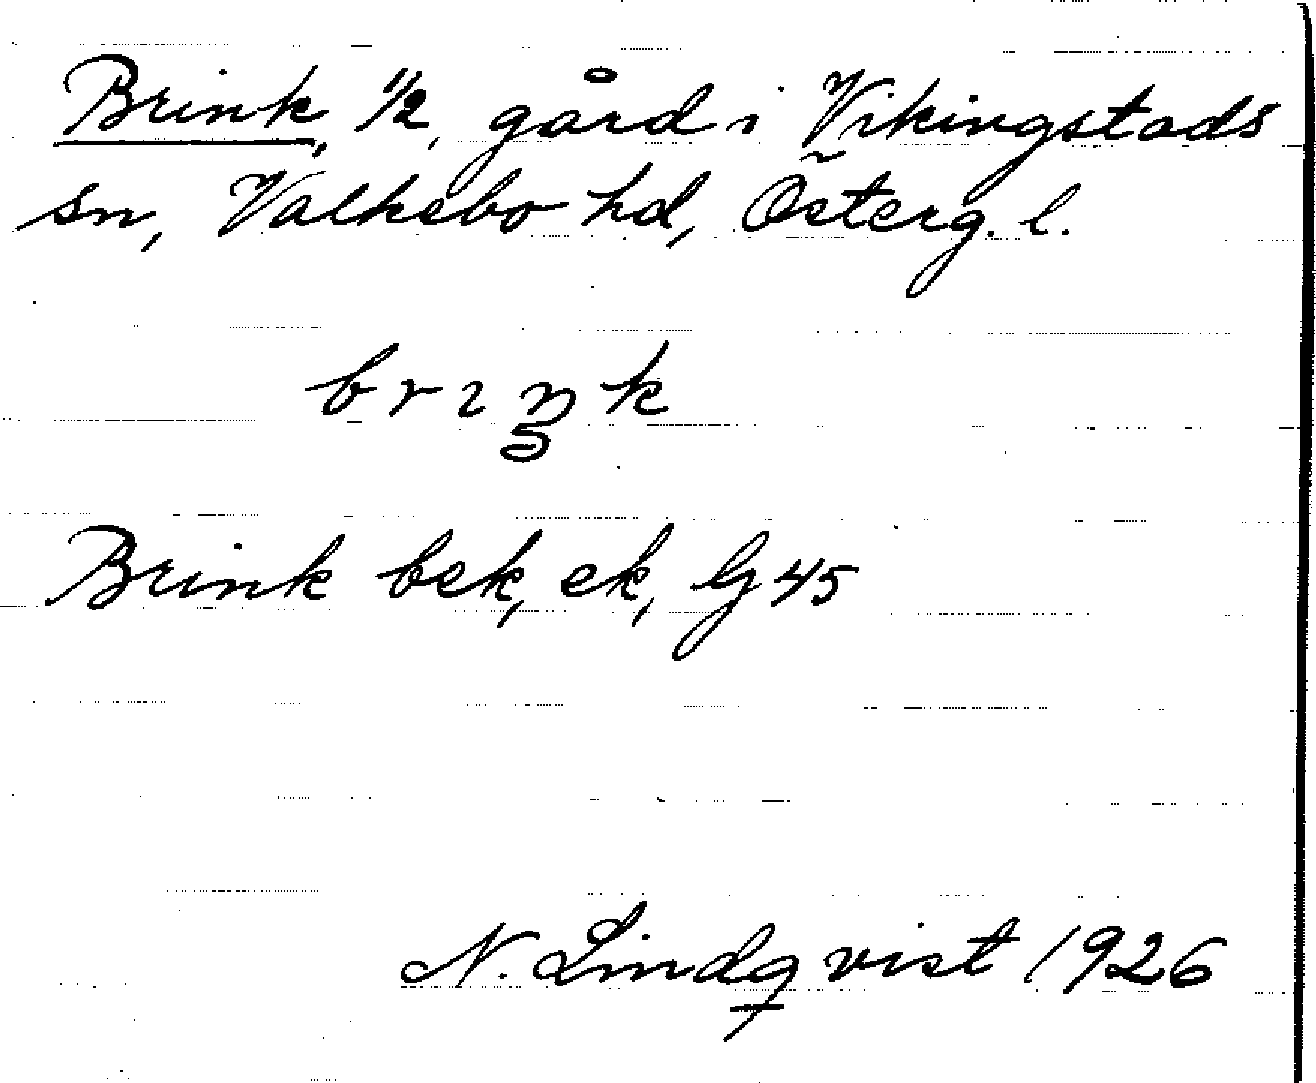 Brink, 1/2, gård i Vikingstads
sn, Valkebo hd, Österg. l.
brıŋk
Brink bek, ek, Gj 45
N. Lindqvist 1926